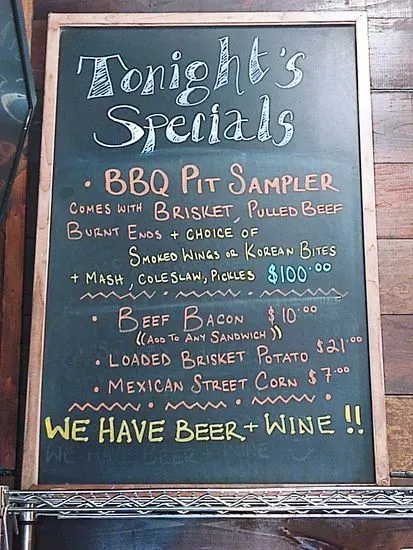 Tonight's
Specials
• BBQ PIT SAMPLER
COMES WITH BRISKET, PULLED BEEF
BURNT ENDS + CHOICE OF
SMOKED WINGS OR KOREAN BITES
+ MASH, COLESLAW, PICKLES $100.00
• BEEF BACON $10.00
((ADD TO ANY SANDWICH))
• LOADED BRISKET POTATO $21.00
• MEXICAN STREET CORN $7.00
WE HAVE BEER + WINE !!
WE HAVE BEER + WINE